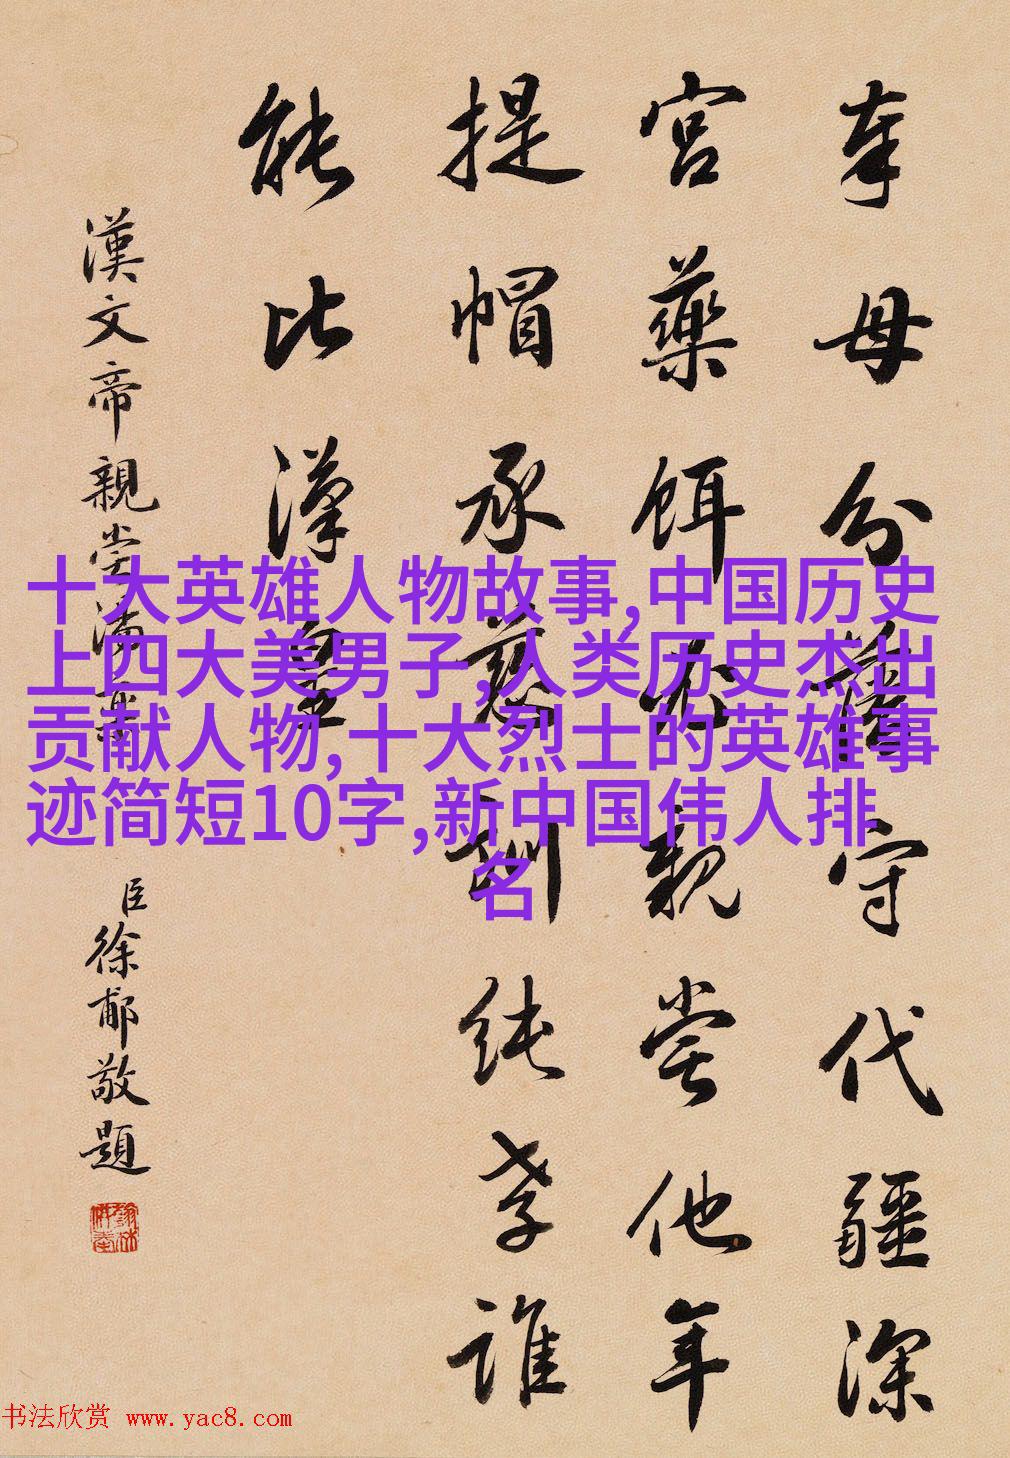 奉母分藩守代疆深
宮藥餌必親嘗他年
提帽承慈訓純孝誰
能比漢皇
漢文帝親嘗湯藥
臣徐郙敬題
十大英雄人物故事,中国历史
上四大美男子,人类历史杰出
贡献人物,十大烈士的英雄事
迹简短10字,新中国伟人排
名
书法欣赏 www.yac8.com